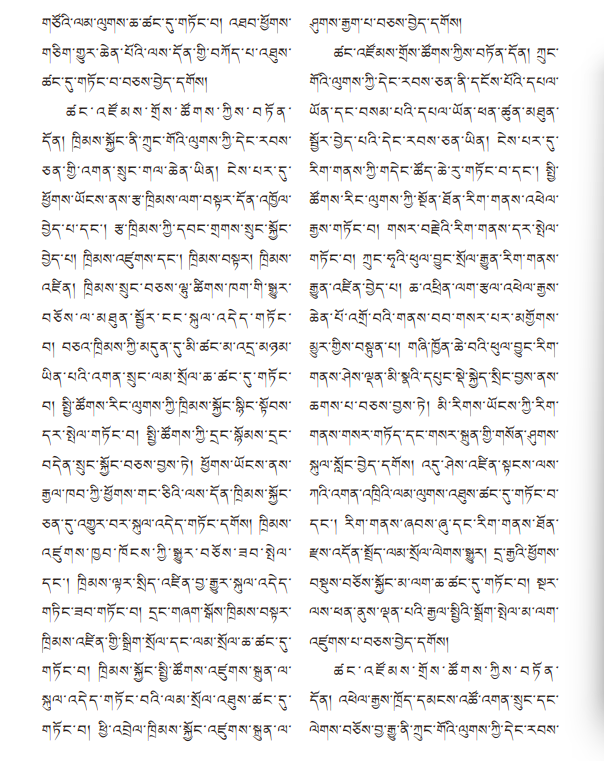 གཙོའི་ལམ་ལུགས་ཆ་ཚང་དུ་གཏོང་བ། འཐབ་ཕྱོགས་
གཅིག་གྱུར་ཆེན་པོའི་ལས་དོན་གྱི་བཀོད་པ་འཐུས་
ཚང་དུ་གཏོང་བ་བཅས་བྱེད་དགོས།
ཚང་འཛོམས་གྲོས་ཚོགས་ཀྱིས་བཏོན་
དོན། ཁྲིམས་སྐྱོང་ནི་ཀྲུང་གོའི་ལུགས་ཀྱི་དེང་རབས་
ཅན་གྱི་འགན་སྲུང་གལ་ཆེན་ཡིན། ངེས་པར་དུ་
ཕྱོགས་ཡོངས་ནས་རྩ་ཁྲིམས་ལག་བསྟར་དོན་འཁྱོལ་
བྱེད་པ་དང་། རྩ་ཁྲིམས་ཀྱི་དབང་གྲགས་སྲུང་སྐྱོང་
བྱེད་པ། ཁྲིམས་འཛུགས་དང་། ཁྲིམས་བསྟར། ཁྲིམས་
འཛིན། ཁྲིམས་སྲུང་བཅས་ལྷུ་ཚིགས་ཁག་གི་སྒྱུར་
བཅོས་ལ་མཐུན་སྦྱོར་ངང་སྐུལ་འདེད་གཏོང་
བ། བཅའ་ཁྲིམས་ཀྱི་མདུན་དུ་མི་ཚང་མ་འདྲ་མཉམ་
ཡིན་པའི་འགན་སྲུང་ལམ་སྲོལ་ཆ་ཚང་དུ་གཏོང་
བ། སྤྱི་ཚོགས་རིང་ལུགས་ཀྱི་ཁྲིམས་སྐྱོང་སྙིང་སྟོབས་
དར་སྤེལ་གཏོང་བ། སྤྱི་ཚོགས་ཀྱི་དྲང་སྙོམས་དྲང་
བདེན་སྲུང་སྐྱོང་བཅས་བྱས་ཏེ། ཕྱོགས་ཡོངས་ནས་
རྒྱལ་ཁབ་ཀྱི་ཕྱོགས་གང་ཅིའི་ལས་དོན་ཁྲིམས་སྐྱོང་
ཅན་དུ་འགྱུར་བར་སྐུལ་འདེད་གཏོང་དགོས། ཁྲིམས་
འཛུགས་ཁྱབ་ཁོངས་ཀྱི་སྒྱུར་བཅོས་ཟབ་སྤེལ་
དང་། ཁྲིམས་ལྟར་སྲིད་འཛིན་བྱ་རྒྱུར་སྐུལ་འདེད་
གཏིང་ཟབ་གཏོང་བ། དྲང་གཞག་སྒོས་ཁྲིམས་བསྟར་
ཁྲིམས་འཛིན་གྱི་སྒྲིག་སྲོལ་དང་ལམ་སྲོལ་ཆ་ཚང་དུ་
གཏོང་བ། ཁྲིམས་སྐྱོང་སྤྱི་ཚོགས་འཛུགས་སྐྲུན་ལ་
སྐུལ་འདེད་གཏོང་བའི་ལམ་སྲོལ་འཐུས་ཚང་དུ་
གཏོང་བ། ཕྱི་འབྲེལ་ཁྲིམས་སྐྱོང་འཛུགས་སྐྲུན་ལ་
ཤུགས་རྒྱག་པ་བཅས་བྱེད་དགོས།
ཚང་འཛོམས་གྲོས་ཚོགས་ཀྱིས་བཏོན་དོན། ཀྲུང་
གོའི་ལུགས་ཀྱི་དེང་རབས་ཅན་ནི་དངོས་པོའི་དཔལ་
ཡོན་དང་བསམ་པའི་དཔལ་ཡོན་ཕན་ཚུན་མཐུན་
སྦྱོར་བྱེད་པའི་དེང་རབས་ཅན་ཡིན། ངེས་པར་དུ་
རིག་གནས་ཀྱི་གདེང་ཚོད་ཆེ་རུ་གཏོང་བ་དང་། སྤྱི་
ཚོགས་རིང་ལུགས་ཀྱི་སྔོན་ཐོན་རིག་གནས་འཕེལ་
རྒྱས་གཏོང་བ། གསར་བརྗེའི་རིག་གནས་དར་སྤེལ་
གཏོང་བ། ཀྲུང་ཧྭའི་ཕུལ་བྱུང་སྲོལ་རྒྱུན་རིག་གནས་
རྒྱུན་འཛིན་བྱེད་པ། ཆ་འཕྲིན་ལག་རྩལ་འཕེལ་རྒྱས་
ཆེན་པོ་འགྲོ་བའི་གནས་བབ་གསར་པར་མགྱོགས་
མྱུར་གྱིས་བསྟུན་པ། གཞི་ཁྱོན་ཆེ་བའི་ཕུལ་བྱུང་རིག་
གནས་ཤེས་ལྡན་མི་སྣའི་དཔུང་སྡེ་སྐྱེད་སྲིང་བྱས་ནས་
ཆགས་པ་བཅས་བྱས་ཏེ། མི་རིགས་ཡོངས་ཀྱི་རིག་
གནས་གསར་གཏོད་དང་གསར་སྐྲུན་གྱི་གསོན་ཤུགས་
སྐུལ་སློང་བྱེད་དགོས། འདུ་ཤེས་འཛིན་སྟངས་ལས་
ཀའི་འགན་འཁྲིའི་ལམ་ལུགས་འཐུས་ཚང་དུ་གཏོང་བ་
དང་། རིག་གནས་ཞབས་ཞུ་དང་རིག་གནས་ཐོན་
རྫས་འདོན་སྤྲོད་ལམ་སྲོལ་ལེགས་སྒྱུར། དྲ་རྒྱའི་ཕྱོགས་
བསྡུས་བཅོས་སྐྱོང་མ་ལག་ཆ་ཚང་དུ་གཏོང་བ། སྔར་
ལས་ཕན་ནུས་ལྡན་པའི་རྒྱལ་སྤྱིའི་སྒྲོག་སྤེལ་མ་ལག་
འཛུགས་པ་བཅས་བྱེད་དགོས།
ཚང་འཛོམས་གྲོས་ཚོགས་ཀྱིས་བཏོན་
དོན། འཕེལ་རྒྱས་ཁྲོད་དམངས་འཚོ་འགན་སྲུང་དང་
ལེགས་བཅོས་བྱ་རྒྱུ་ནི་ཀྲུང་གོའི་ལུགས་ཀྱི་དེང་རབས་